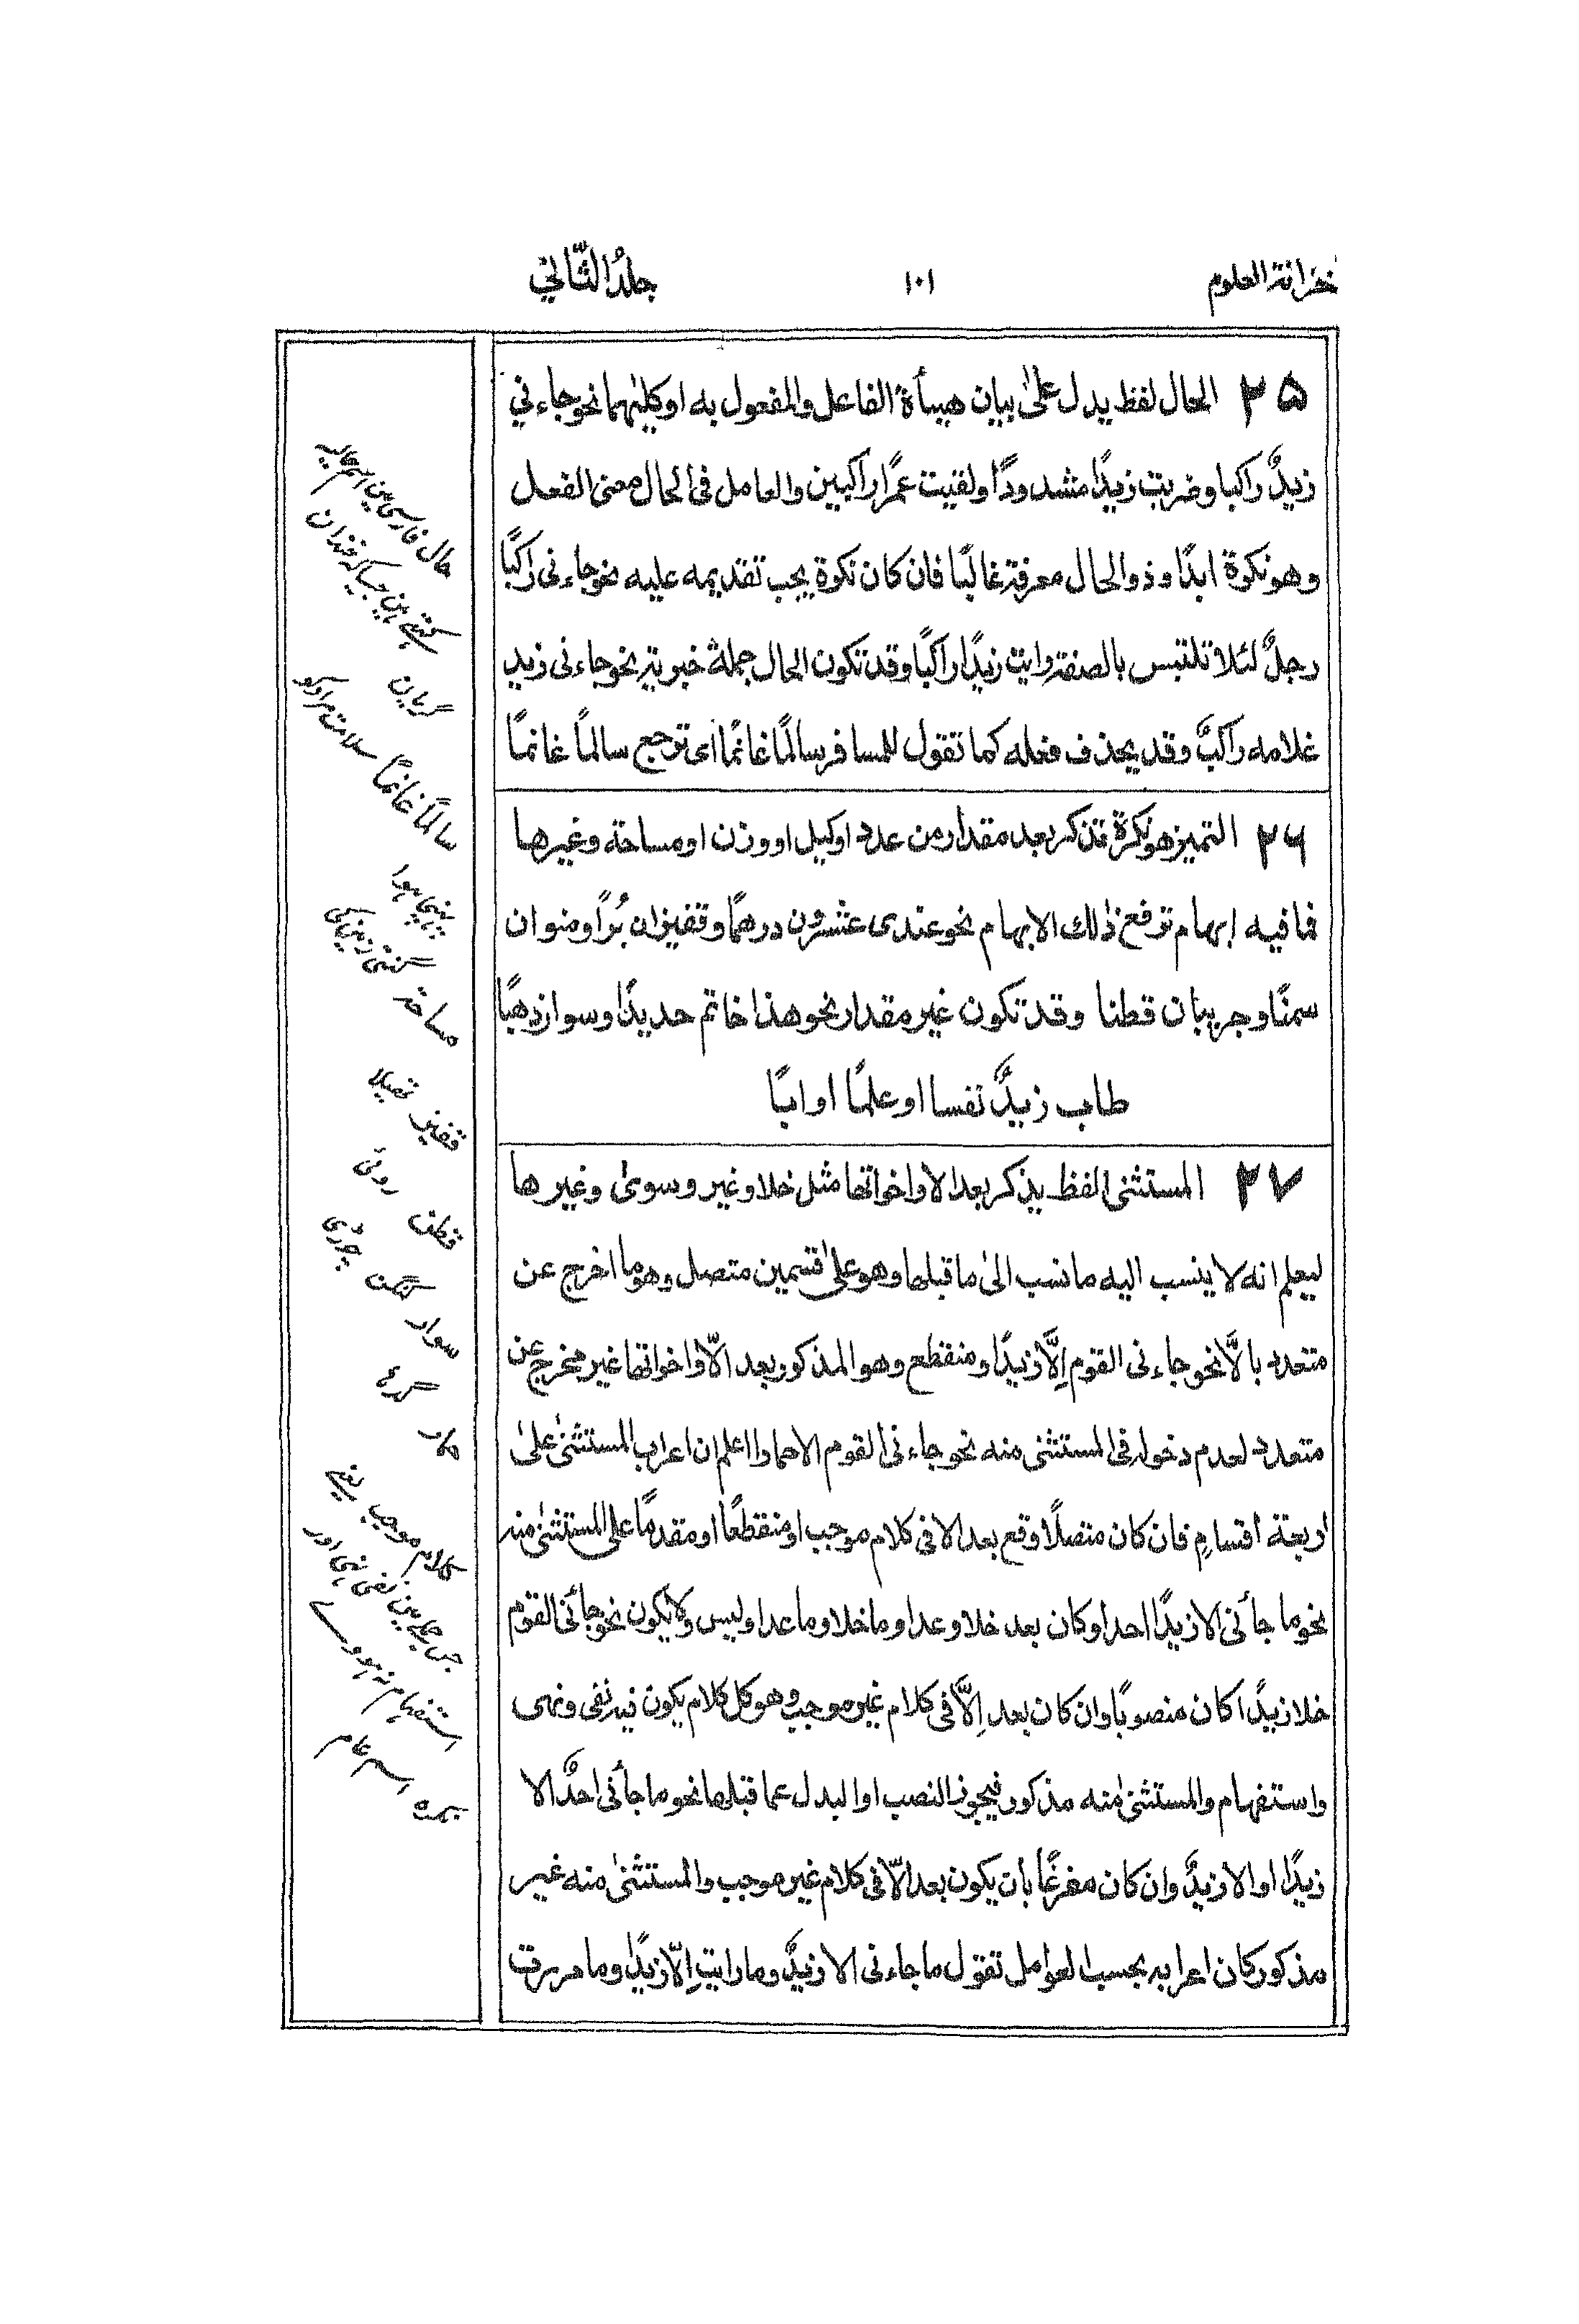 خزانة العلوم
١٠١
جلدُ الثّاني
٢٥ الحال لفظ يدل علىٰ بيان هيأة الفاعل والمفعول به او كليهما نحو جاءني
زيدٌ راكبا وضربت زيدًا مشدودًا ولقيت عمرًا راكبين والعامل فى الحال معنى الفعل
وهو نكرة ابدًا وذو الحال معرفة غالبًا فان كان نكرة يجب تقديمه عليه نحو جاءنى راكبًا
رجلٌ لئلا تلتبس بالصفة رايت زيدًا راكبًا وقد تكون الحال جملة خبرية نحو جاءنى زيد
غلامه راكبٌ وقد يحذف فعله كما تقول للمسافر سالمًا غانمًا اى ترجع سالمًا غانمًا
٢٦ التميز هو نكرة تذكر بعد مقدار من عدد اوكيل او وزن او مساحة وغيرها
فما فيه ابهام ترفع ذٰلك الابهام نحو عندى عشرون درهمًا وقفيزان بُرًا ومنوان
سمنًا وجريبان قطنا وقد تكون غير مقدار نحو هذا خاتم حديدًا وسوار ذهبًا
طاب زيدٌ نفسا او علمًا او ابًا
٢٧ المستثنى لفظ يذكر بعد الا واخواتها مثل خلا وغير وسوىٰ وغيرها
ليعلم انه لا ينسب اليه ما نسب الىٰ ما قبلها وهو علىٰ قسمين متصل وهو ما اخرج عن
متعدد بالَّا نحو جاءنى القوم اِلَّا زيدًا ومنقطع وهو المذكور بعد الّا واخواتها غير مخرج عن
متعدد لعدم دخوله فى المستثنى منه نحو جاءنى القوم الا حمارا اعلم ان اعراب المستثنىٰ علىٰ
اربعة اقسامٍ فان كان متصلًا وقع بعد الا فى كلام موجب او منقطعًا او مقدمًا على المستثنىٰ منه
نحو ما جأنى الا زيدًا احد او كان بعد خلا وعدا وما خلا وما عدا وليس ولا يكون نحو جأنى القوم
خلا زيدًا كان منصوبًا وان كان بعد اِلَّا فى كلام غير موجب وهو كل كلام يكون فيه نفى ونهى
واستفهام والمستثنىٰ منه مذكور فيجوز النصب او البدل عما قبلها نحو ما جأنى احدٌ الا
زيدًا او الا زيدٌ وان كان مفرغًا بان يكون بعد الّا فى كلام غير موجب والمستثنىٰ منه غير
مذكور كان اعرابه بحسب العوامل تقول ما جاءنى الا زيدٌ وما رايت اِلّا زيدًا وما مررت
حال فارسى مين اسم حاليه
كہتے ہين جيساكہ خندان
گريان
سالمًا غانمًا سلامت مرادكو
پہنچا ہوا
مساحة
قفيز
قطن روئى
سوار كنگن چوڑى
حمار گدہا
كلام موجب يعنے
جس جملے مين نفى نہى اور
استفہام نہ ہووے